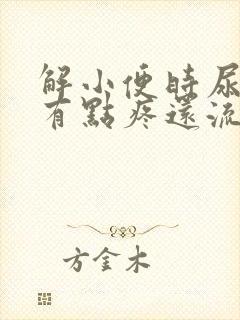 解小便時尿
有點疼還流
方金木